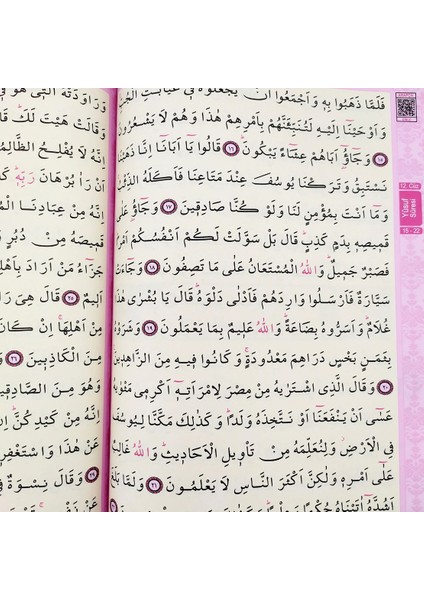 فَلَمَّا ذَهَبُوا بِهِ وَاَجْمَعُوا اَنْ يَجْعَلُوهُ فِي غَيَابَتِ الْجُبِّ
وَاَوْحَيْنَا اِلَيْهِ لَتُنَبِّئَنَّهُمْ بِاَمْرِهِمْ هٰذَا وَهُمْ لَا يَشْعُرُونَ
١٥ وَجَاؤُ اَبَاهُمْ عِشَاءً يَبْكُونَ ١٦ قَالُوا يَا اَبَانَا اِنَّا ذَهَبْنَا
نَسْتَبِقُ وَتَرَكْنَا يُوسُفَ عِنْدَ مَتَاعِنَا فَاَكَلَهُ الذِّئْبُ
وَمَا اَنْتَ بِمُؤْمِنٍ لَنَا وَلَوْ كُنَّا صَادِقِينَ ١٧ وَجَاؤُ عَلٰى
قَمِيصِهِ بِدَمٍ كَذِبٍ قَالَ بَلْ سَوَّلَتْ لَكُمْ اَنْفُسُكُمْ اَمْرًا
فَصَبْرٌ جَمِيلٌ وَاللّٰهُ الْمُسْتَعَانُ عَلٰى مَا تَصِفُونَ ١٨ وَجَاءَتْ
سَيَّارَةٌ فَاَرْسَلُوا وَارِدَهُمْ فَاَدْلٰى دَلْوَهُ قَالَ يَا بُشْرٰى هٰذَا
غُلَامٌ وَاَسَرُّوهُ بِضَاعَةً وَاللّٰهُ عَلِيمٌ بِمَا يَعْمَلُونَ ١٩ وَشَرَوْهُ
بِثَمَنٍ بَخْسٍ دَرَاهِمَ مَعْدُودَةٍ وَكَانُوا فِيهِ مِنَ الزَّاهِدِينَ
٢٠ وَقَالَ الَّذِي اشْتَرٰيهُ مِنْ مِصْرَ لِامْرَاَتِهِ اَكْرِمِي مَثْوٰيهُ
عَسٰى اَنْ يَنْفَعَنَا اَوْ نَتَّخِذَهُ وَلَدًا وَكَذٰلِكَ مَكَّنَّا لِيُوسُفَ
فِي الْاَرْضِ وَلِنُعَلِّمَهُ مِنْ تَأْوِيلِ الْاَحَادِيثِ وَاللّٰهُ غَالِبٌ
عَلٰى اَمْرِهِ وَلٰكِنَّ اَكْثَرَ النَّاسِ لَا يَعْلَمُونَ ٢١ وَلَمَّا بَلَغَ
اَشُدَّهُ اٰتَيْنَاهُ حُكْمًا
12. Cüz
Yûsuf Sûresi
15 - 22
وَرَاوَدَتْهُ الَّتِي هُوَ فِي
وَقَالَتْ هَيْتَ لَكَ قَالَ
اِنَّهُ لَا يُفْلِحُ الظَّالِمُونَ
اَنْ رَاٰ بُرْهَانَ رَبِّهِ
اِنَّهُ مِنْ عِبَادِنَا
قَمِيصَهُ مِنْ دُبُرٍ
جَزَاءُ مَنْ اَرَادَ بِاَهْلِكَ
اَلِيمٌ ٢٥ قَالَ هِيَ رَاوَدَتْنِي
مِنْ اَهْلِهَا اِنْ كَانَ
مِنَ الْكَاذِبِينَ ٢٦
وَهُوَ مِنَ الصَّادِقِينَ
اِنَّهُ مِنْ كَيْدِكُنَّ
عَنْ هٰذَا وَاسْتَغْفِرِي
٢٩ وَقَالَ نِسْوَةٌ فِي